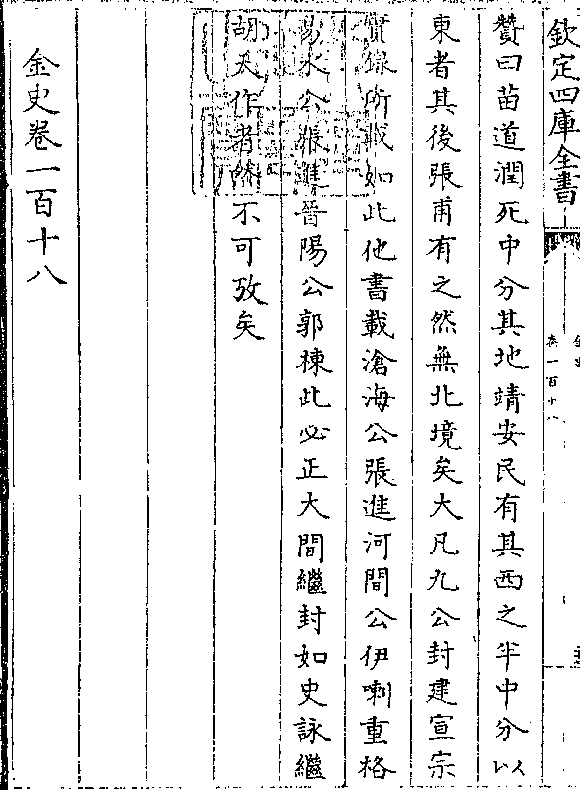 欽定四庫全書
金史
卷一百十八
贊曰苗道潤死中分其地靖安民有其西之半中分以
東者其後張甫有之然無北境矣大凡九公封建宣宗
實錄所載如此他書載滄海公張進河間公伊喇重格
易水公張進晉陽公郭棟此必正大間繼封如史詠繼
胡天作者然不可攷矣
金史卷一百十八